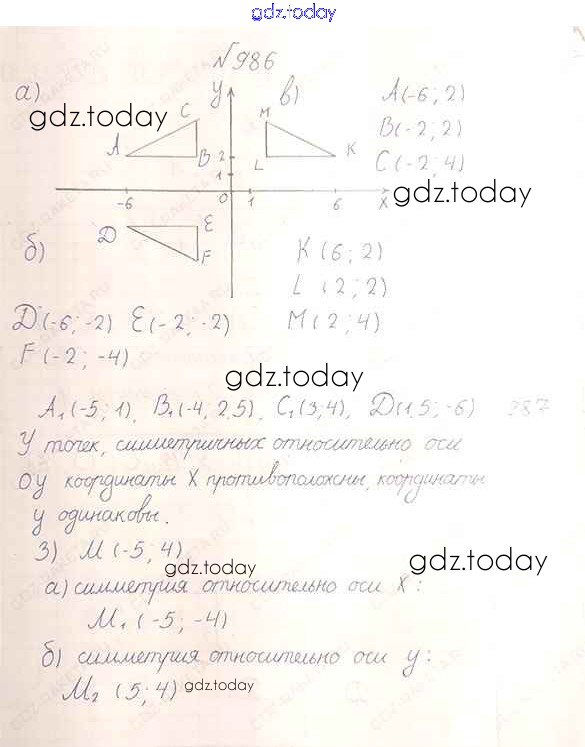 gdz.today
№986
а) y в) A(-6; 2)
gdz.today
C M B(-2; 2)
A B 2 L K C(-2; 4)
1
gdz.today
-6 0 1 6 x
D E
б) F K (6; 2)
L (2; 2)
D(-6; -2) E(-2; -2) M(2; 4)
F(-2; -4)
gdz.today
A₁(-5; 1), B₁(-4; 2,5), C₁(3;4), D(1,5; -6) 987
У точек, симметричных относительно оси
Оу координаты X противоположны, координаты
у одинаковы.
3) M(-5; 4)
gdz.today
gdz.today
а) симметрия относительно оси X:
M₁(-5; -4)
б) симметрия относительно оси y:
M₂ (5; 4)
gdz.today